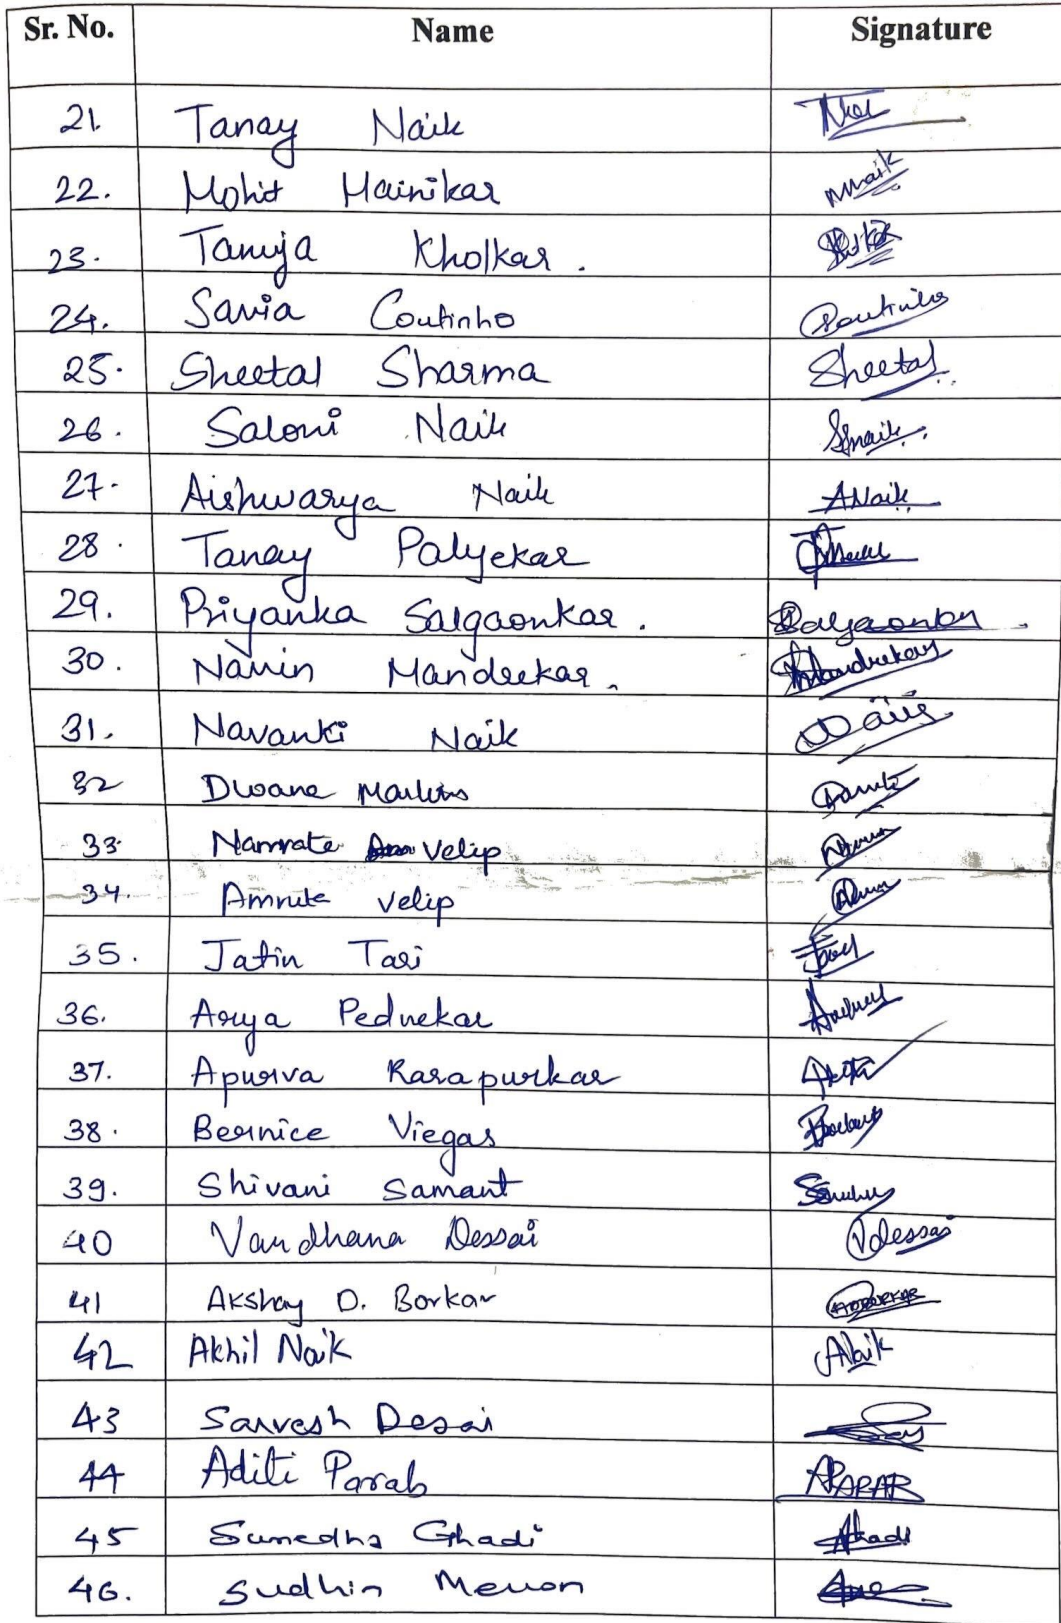 Sr. No. Name Signature
21. Tanay Naik
22. Mohit Mainikar Mnaik
23. Tanuja Kholkar.
24. Savia Coutinho Coutinho
25. Sheetal Sharma Sheetal
26. Saloni Naik SNaik
27. Aishwarya Naik ANaik
28. Tanay Palyekar
29. Priyanka Salgaonkar. Salgaonkar
30. Navin Mandrekar. Mandrekar
31. Navanki Naik Naik
32 Dwane Martins
33. Namrata Velip
34. Amruta Velip
35. Jatin Tari
36. Arya Pednekar
37. Apurva Karapurkar
38. Bernice Viegas
39. Shivani Samant
40 Vandhana Dessai Vdessai
41 Akshay D. Borkar ADBORKAR
42 Akhil Naik ANaik
43 Sarvesh Desai
44 Aditi Parab APARAB
45 Sumedha Ghadi Ghadi
46. Sudhin Menon